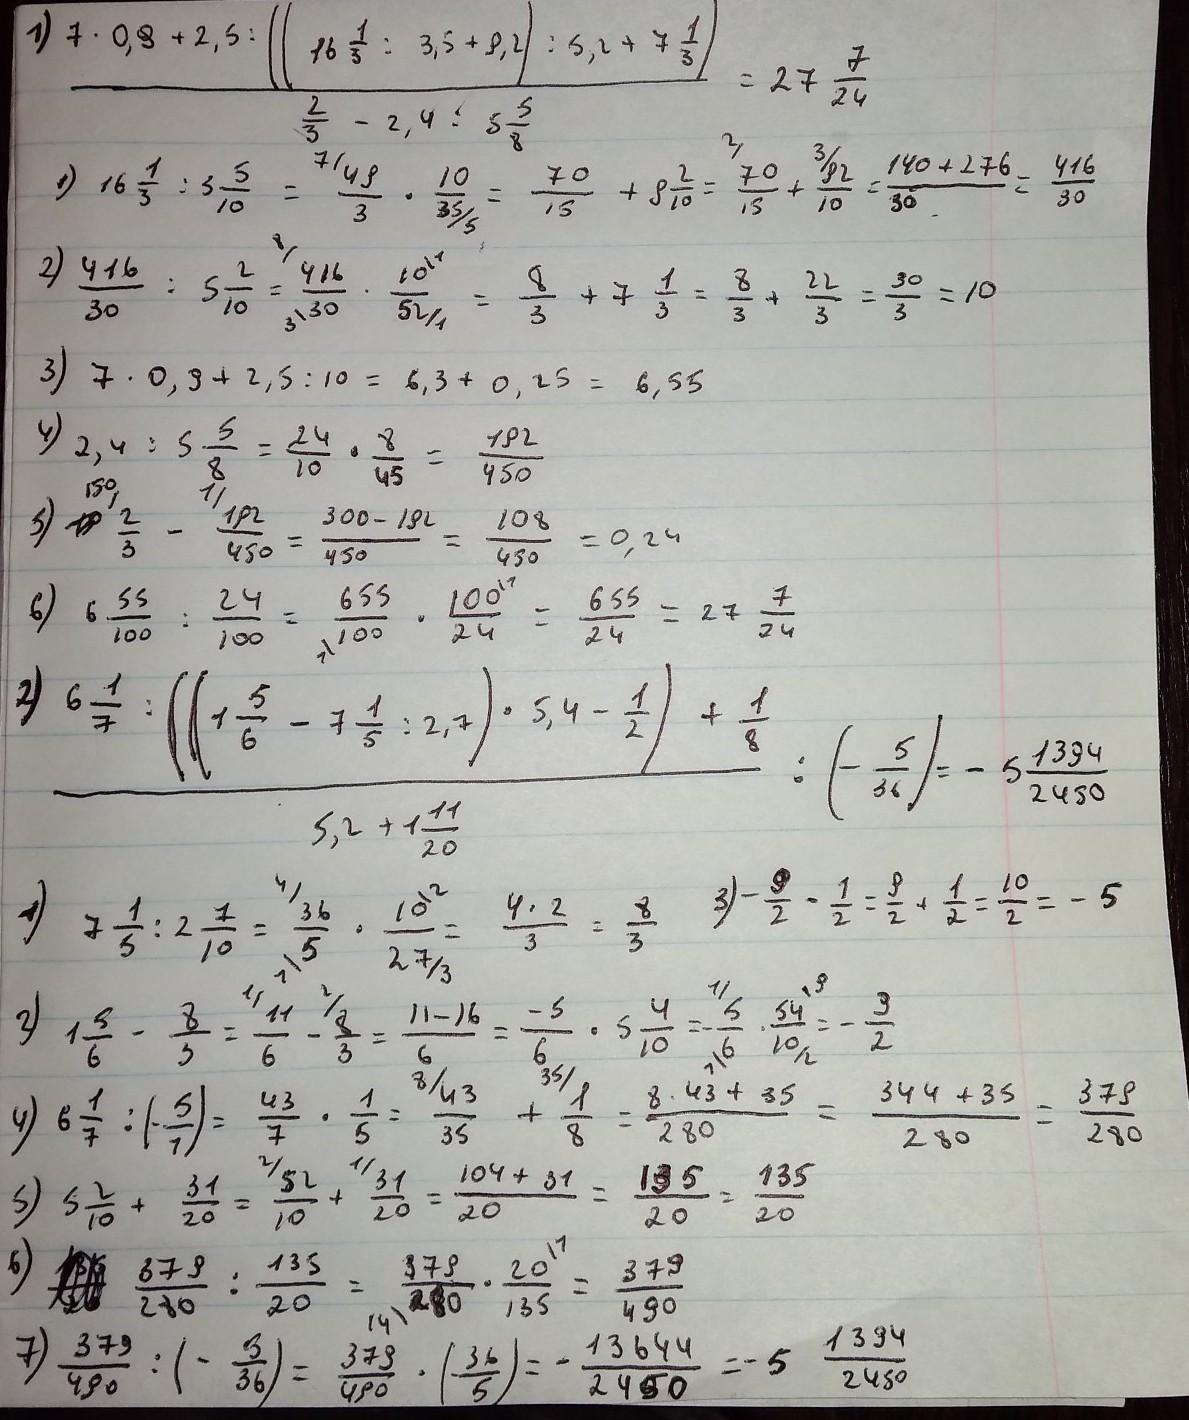 1) 7 · 0,9 + 2,5 : ((16 1/3 : 3,5 + 9,2) : 5,2 + 7 1/3) = 27 7/24
2/3 - 2,4 : 5 5/8
1) 16 1/3 : 3 5/10 = 7/ 49/3 · 10/35 /5 = 70/15 + 9 2/10 = 2/ 70/15 + 3/ 92/10 = 140 + 276/30 = 416/30
2) 416/30 : 5 2/10 = 8/ 416/30 3\ · 10 \1/52 /1 = 8/3 + 7 1/3 = 8/3 + 22/3 = 30/3 = 10
3) 7 · 0,9 + 2,5 : 10 = 6,3 + 0,25 = 6,55
4) 2,4 : 5 5/8 = 24/10 · 8/45 = 192/450
5) 150/ 2/3 - 1/ 192/450 = 300 - 192/450 = 108/450 = 0,24
6) 6 55/100 : 24/100 = 655/100 1\ · 100 \1/24 = 655/24 = 27 7/24
2) 6 1/7 : ((1 5/6 - 7 1/5 : 2,7) · 5,4 - 1/2) + 1/8 : (- 5/36) = - 5 1394/2450
5,2 + 1 11/20
1) 7 1/5 : 2 7/10 = 4/ 36/5 1\ · 10 \2/27 /3 = 4 · 2/3 = 8/3
3) - 9/2 - 1/2 = 9/2 + 1/2 = 10/2 = - 5
2) 1 5/6 - 8/3 = 1/ 11/6 - 2/ 8/3 = 11 - 16/6 = -5/6 · 5 4/10 = 1/ - 5/6 1\ · 54 \9/10 /2 = - 9/2
4) 6 1/7 : (- 5/1) = 43/7 · 1/5 = 8/ 43/35 + 35/ 1/8 = 8 · 43 + 35/280 = 344 + 35/280 = 379/280
5) 5 2/10 + 31/20 = 2/ 52/10 + 1/ 31/20 = 104 + 31/20 = 135/20 = 135/20
6) 379/280 : 135/20 = 379/280 14\ · 20 \1/135 = 379/490
7) 379/490 : (- 5/36) = 379/490 · (36/5) = - 13644/2450 = - 5 1394/2450